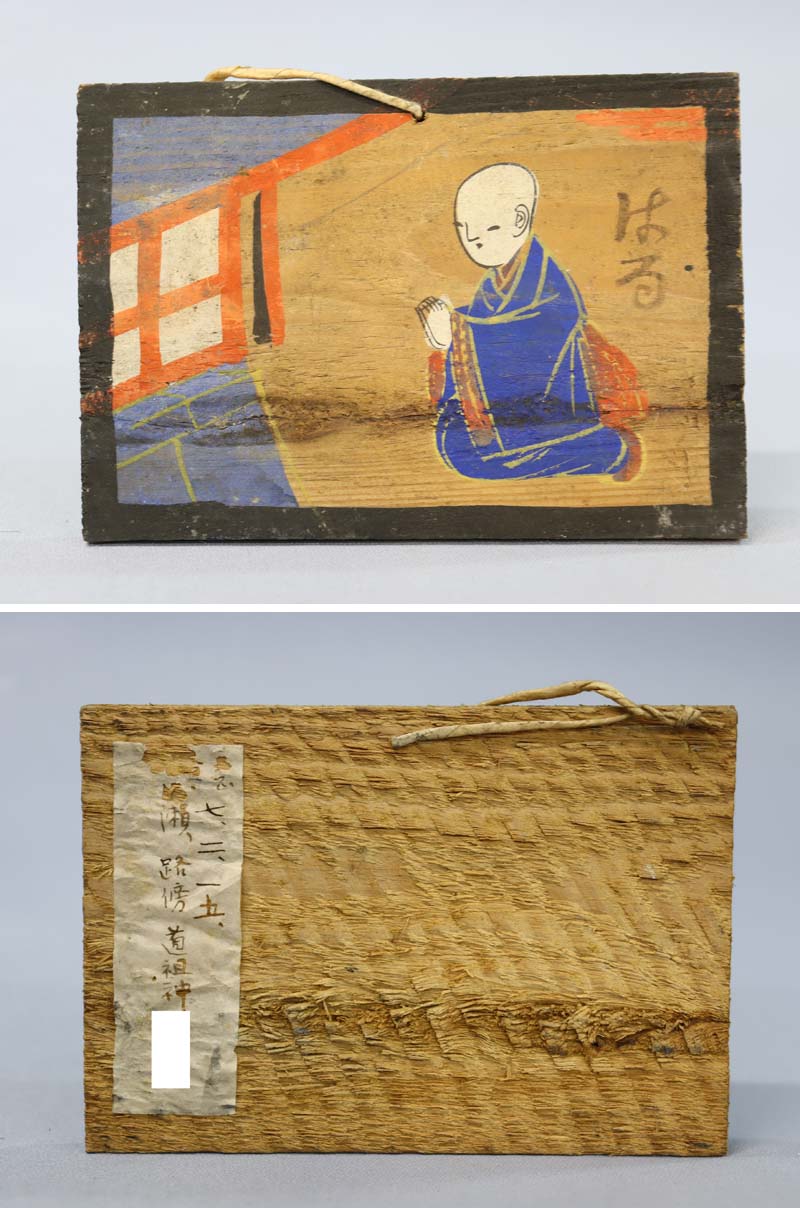 はる
七、三、一五、
瀬、路傍 道祖神